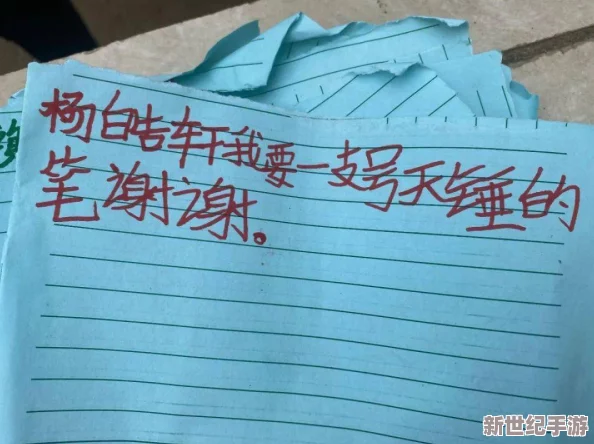 杨皓轩我要一支号天锤的
笔谢谢。
新世纪手游